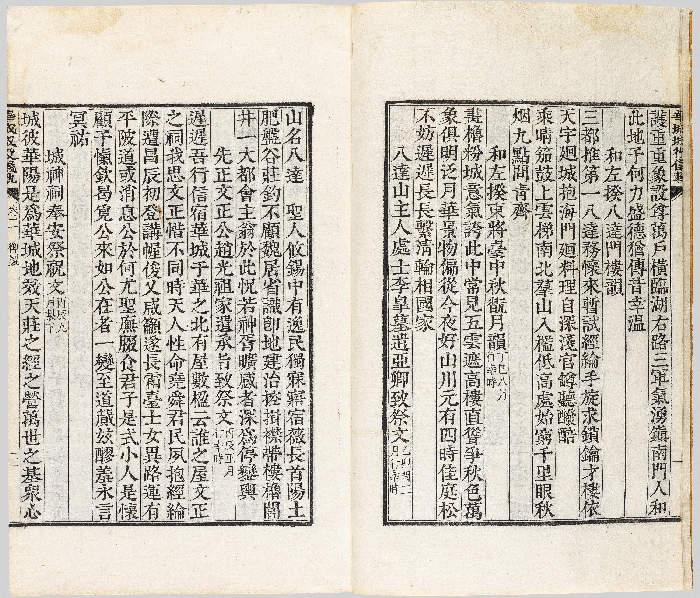 護重重象設尊萬戶橫臨湖右路三軍氣湧鎭南門人和
此地予何力盛德猶傳昔幸溫
和左揆八達門樓韻
三都推第一八達務懷來暫試經綸手旋求鎖鑰才樓依
天宇廻城抱海門廻料理自深淺官罇聽醱醅
乘晴笳鼓上雲梯南北羣山入檻低高處始窮千里眼秋
烟九點問靑齊
和左揆東將臺中秋翫月韻
畫櫓粉城意氣誇此中常見五雲遮高樓直聳爭秋色萬
象俱明泛月華景物偏從今夜好山川元有四時佳庭松
不妨遲遲長長繫淸輪相國家
八達山主人處士李皐墓遣亞卿致祭文
山名八達 聖人攸錫中有逸民獨寐寤宿薇長首陽土
肥盤谷莊鈞不顧魏居省識卽地建治按揩襟帶樓櫓閭
井一大都會主翁於此怳若神胥曠感者深爲停鑾輿
先正文正公趙光祖家遣承旨致祭文
遲遲吾行信宿華城子華之北有屋數楹云誰之屋文正
之祠我思文正惜不同時天人性命堯舜君民夙抱經綸
際遭昌辰初登講幄俊乂咸籲遂長霜臺士女異路運有
平陂道或消息公於何尤聖廡腏食君子是式小人是懷
顧予懍欽曷覓公來如公在者一變至道蕆玆醪羞永言
冥祐
城神祠奉安祭祝文
城彼華陽是爲華城地效天莊之經之營萬世之基衆心